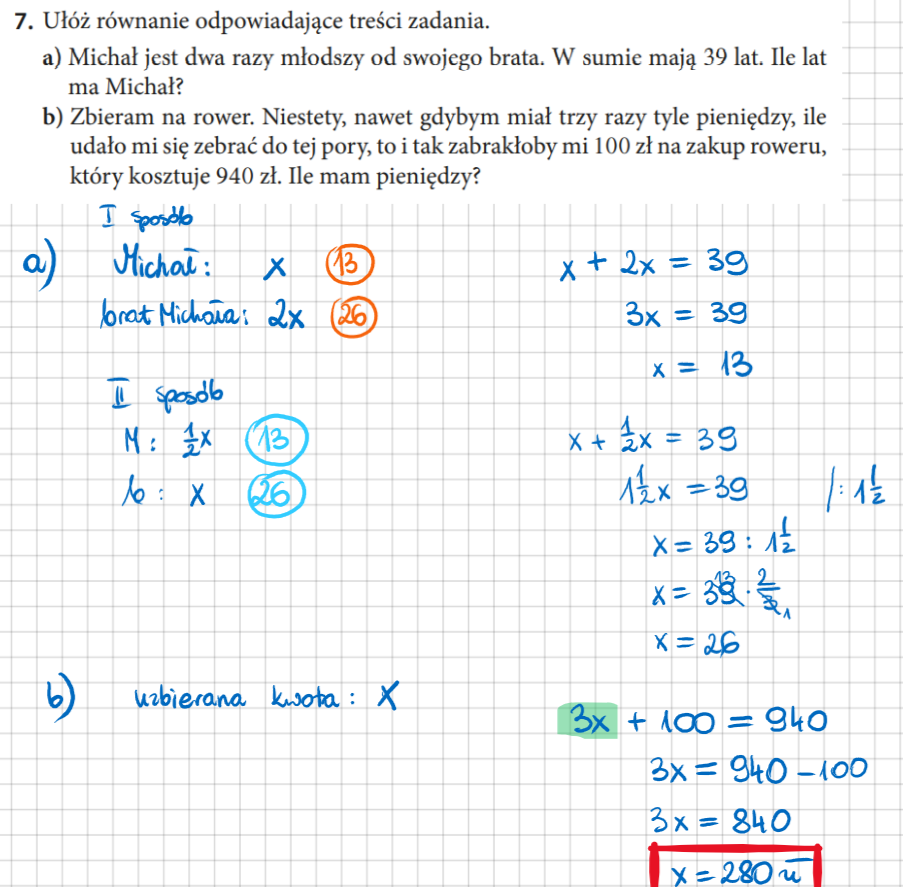 7. Ułóż równanie odpowiadające treści zadania.
a) Michał jest dwa razy młodszy od swojego brata. W sumie mają 39 lat. Ile lat
ma Michał?
b) Zbieram na rower. Niestety, nawet gdybym miał trzy razy tyle pieniędzy, ile
udało mi się zebrać do tej pory, to i tak zabrakłoby mi 100 zł na zakup roweru,
który kosztuje 940 zł. Ile mam pieniędzy?
I sposób
a) Michał: x 13
brat Michała: 2x 26
x + 2x = 39
3x = 39
x = 13
II sposób
M: 1/2 x 13
b: x 26
x + 1/2 x = 39
1 1/2 x = 39 /: 1 1/2
x = 39 : 1 1/2
x = 39 13 · 2/3 1
x = 26
b) uzbierana kwota: x
3x + 100 = 940
3x = 940 - 100
3x = 840
x = 280 zł